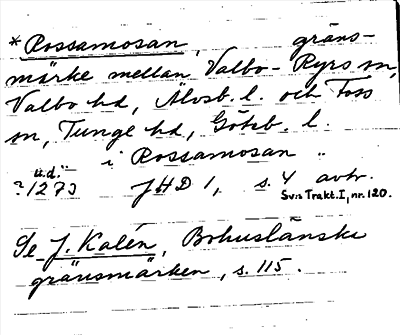 *Rossamosan, gräns-
märke mellan Valbo-Ryrs sn,
Valbo hd, Älvsb. l. och Foss
sn, Tunge hd, Göteb. l.
i Rossamosan
u.d.
?1273 JHD 1, s. 4 avtr.
Sv:s Trakt. I, nr. 120.
Se J. Kalén, Bohuslänska
gränsmärken, s. 115.